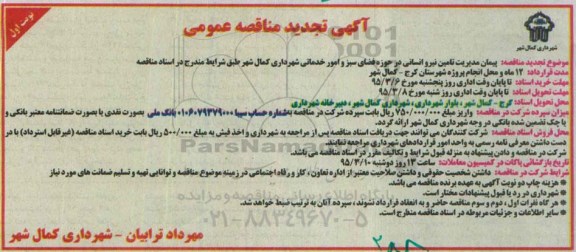 نوبت اول
آگهی تجدید مناقصه عمومی
شهرداری کمال شهر
موضوع تجدید مناقصه: پیمان مدیریت تامین نیرو انسانی در حوزه فضای سبز و امور خدماتی شهرداری کمال شهر طبق شرایط مندرج در اسناد مناقصه
مدت قرارداد: ۱۲ ماه و محل انجام پروژه شهرستان کرج – کمال شهر
مهلت خرید اسناد: تا پایان وقت اداری روز پنجشنبه مورخ ۹۵/۳/۶
مهلت تحویل اسناد: تا پایان وقت اداری روز شنبه مورخ ۹۵/۳/۸
محل تحویل اسناد: کرج – کمال شهر، بلوار شهرداری، شهرداری کمال شهر، دبیرخانه شهرداری
میزان سپرده شرکت در مناقصه: واریز مبلغ ۷۵۰/۰۰۰/۰۰۰ ریال بابت سپرده شرکت در مناقصه به شماره حساب سیبا ۰۱۰۶۰۷۹۳۷۹۰۰۰ بانک ملی بصورت نقدی یا بصورت ضمانتنامه معتبر بانکی و
یا چک تضمین شده بانکی در وجه شهرداری کمال شهر ارائه گردد.
محل فروش اسناد مناقصه: شرکت کنندگان می توانند جهت دریافت اسناد مناقصه پس از مراجعه به شهرداری و اخذ فیش به مبلغ ۵۰۰/۰۰۰ ریال بابت خرید اسناد مناقصه (غیر قابل استرداد) با در
دست داشتن معرفی نامه رسمی به واحد امور قراردادهای شهرداری مراجعه نمایند.
شرکت در مناقصه و دادن پیشنهاد به منزله قبول شرایط و تکالیف مقرر در اسناد مناقصه می باشد.
تاریخ بازگشائی پاکات در کمیسیون معاملات: ساعت ۱۳ روز دوشنبه ۹۵/۳/۱۰
شرایط شرکت در مناقصه: داشتن شخصیت حقوقی و داشتن صلاحیت معتبر از اداره تعاون، کار و رفاه اجتماعی در زمینه موضوع مناقصه و توانایی تهیه و تسلیم ضمانت های مورد نیاز
* هزینه چاپ دو نوبت آگهی به عهده برنده مناقصه می باشد.
* شهرداری در رد یا قبول پیشنهادات مختار است.
* هر گاه نفرات اول، دوم و سوم مناقصه حاضر و به انعقاد قرارداد نشوند، سپرده آنان به ترتیب ضبط خواهد شد.
* سایر اطلاعات و جزئیات مربوطه در اسناد مناقصه مندرج است.
۰۲۱-۸۸۳۴۹۶۷۰-۵
مهرداد ترابیان – شهرداری کمال شهر